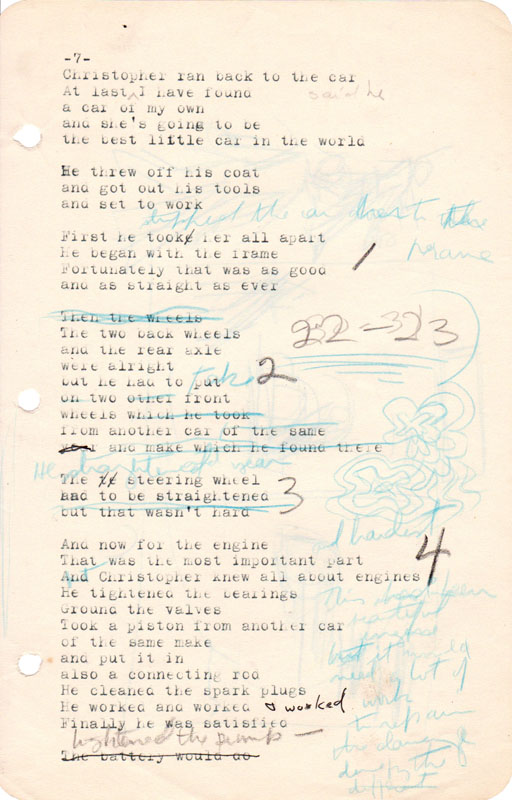 -7-
Christopher ran back to the car
At last, I have found said he
a car of my own
and she's going to be
the best little car in the world
He threw off his coat
and got out his tools
and set to work
stripped the car down to the
frame
First he took her all apart
He began with the frame 1
Fortunately that was as good
and as straight as ever
Then the wheels
The two back wheels 232-323
and the rear axle
were alright
but he had to put take 2
on two other front
wheels which he took
from another car of the same
year and make which he found there
He straightened
The steering wheel 3
had to be straightened
but that wasn't hard
and hardest
And now for the engine
That was the most important part 4
And Christopher knew all about engines
He tightened the bearings
Ground the valves
Took a piston from another car
of the same make
and put it in
also a connecting rod
He cleaned the spark plugs
He worked and worked & worked.
Finally he was satisfied
tightened the pump —
The battery would do
This
beautiful
engine
but it would
need a lot of
work
to repair
the damage